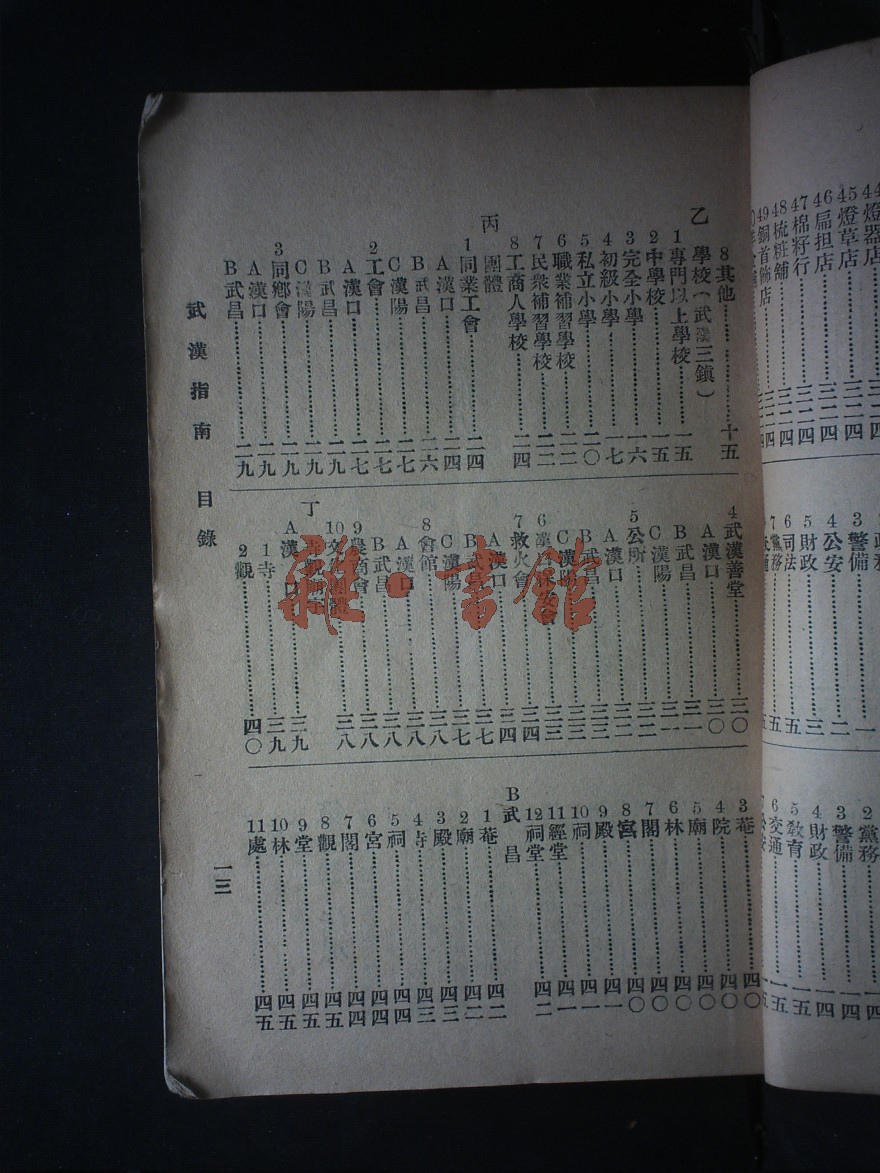 44燈器店
45燈草店
46扁担店
47棉籽行
48梳粧舖
49銅首飾店
3警備
4公安
5財政
6司法
7黨務
2黨務
3警備
4財政
5教育
6交通
8其他……十五
乙 學校(武漢三鎮)
1專門以上學校……一五
2中學校……一五
3完全小學……一六
4初級小學……一七
5私立小學……二〇
6職業補習學校……二二
7民衆補習學校……二二
8工商人學校……二四
丙 團體
1同業工會……二四
A漢口……二四
B武昌……二六
C漢陽……二七
2工會……二七
A漢口……二七
B武昌……二九
C漢陽……二九
3同鄉會……二九
A漢口……二九
B武昌……二九
4武漢善堂……三〇
A漢口……三〇
B武昌……三一
C漢陽……三一
5公所……三二
A漢口……三二
B武昌……三三
C漢陽……三三
6漢……三三
7救火會……三四
A漢口……三四
B武昌……三七
C漢陽……三七
8會館……三八
A漢口……三八
B武昌……三八
9農商會……三八
10文……團體……三八
丁
A漢口……三九
1寺……三九
2觀……四〇
3菴……四〇
4院……四〇
5廟……四〇
6林……四〇
7閣……四〇
8宮……四〇
9殿……四一
10祠……四一
11經堂……四一
12祠堂……四二
B武昌
1菴……四二
2廟……四二
3殿……四三
4寺……四三
5祠……四四
6宮……四四
7閣……四四
8觀……四五
9堂……四五
10林……四五
11處……四五
武漢指南 目錄 一三
雜·書館